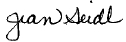 Jean Seidl